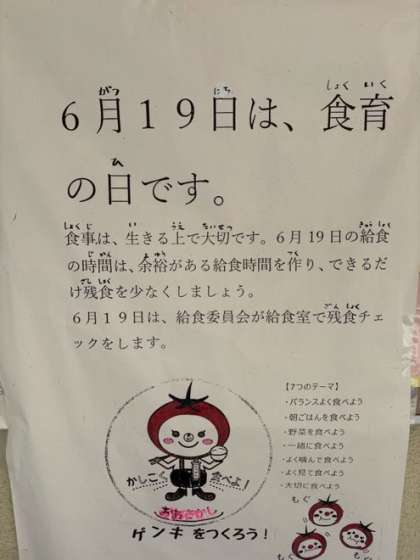 ６月１９日は、食育
の日です。
食事は、生きる上で大切です。６月19日の給食
の時間は、余裕がある給食時間を作り、できるだ
け残食を少なくしましょう。
６月１９日は、給食委員会が給食室で残食チェ
ックをします。
【7つのテーマ】
・バランスよく食べよう
・朝ごはんを食べよう
・野菜を食べよう
・一緒に食べよう
・よく噛んで食べよう
・よく見て食べよう
・大切に食べよう
かしこく 食べよ！
おおさかし
ゲンキをつくろう！
もぐ
もぐ